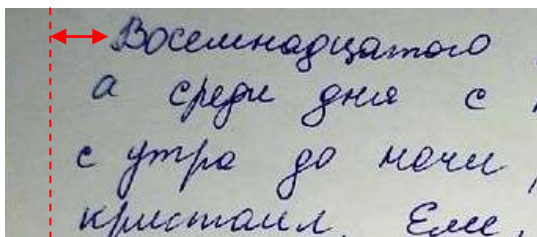 Восемнадцатого
а среди дня с
с утра до ночи
кристалл. Еле,